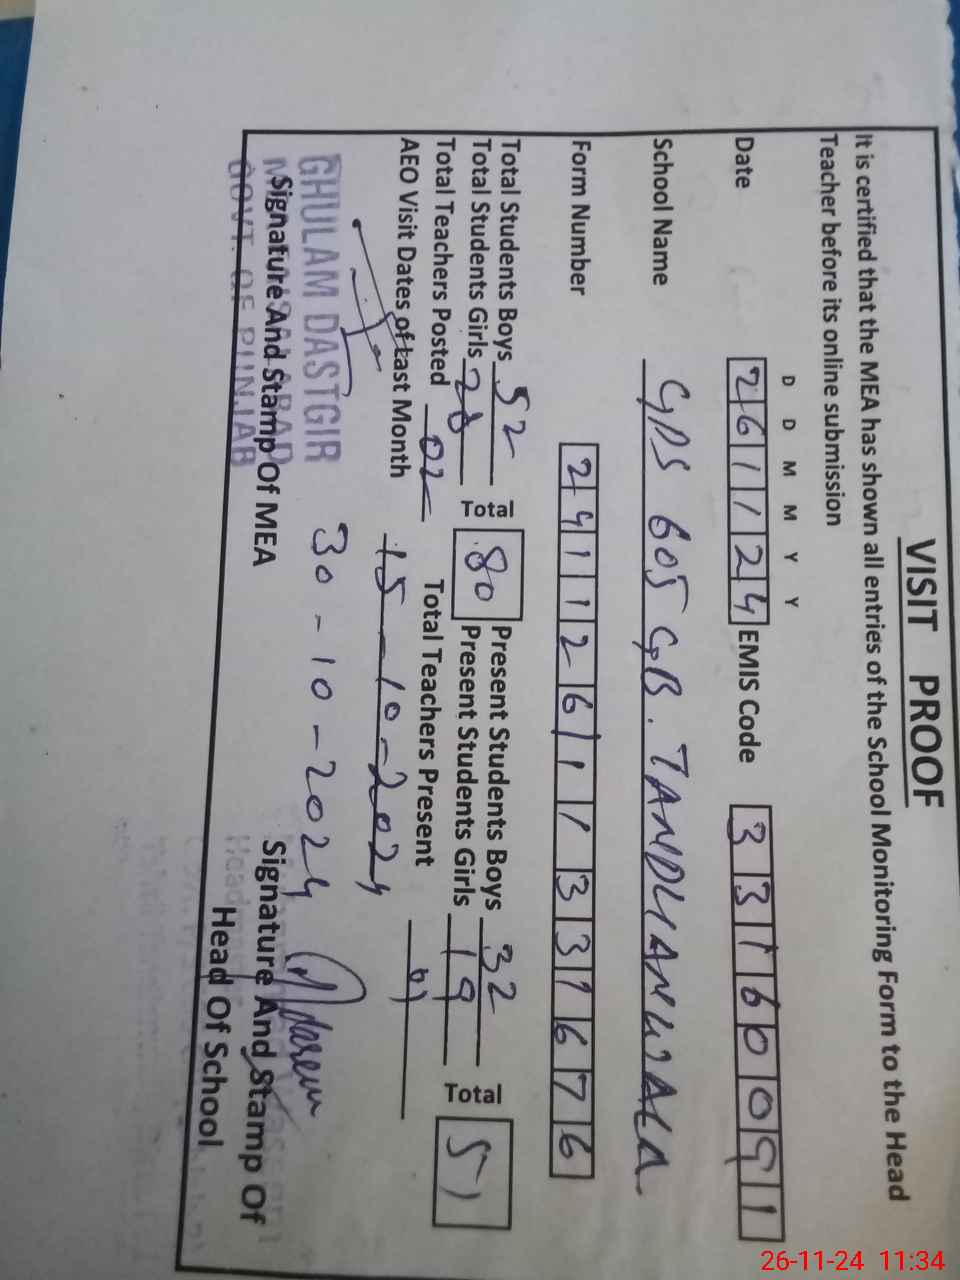 VISIT PROOF
It is certified that the MEA has shown all entries of the School Monitoring Form to the Head
Teacher before its online submission
D D M M Y Y
Date 261124 EMIS Code 33160091
School Name GPS 605 GB. TANDLIANWALA
Form Number 24112611331676
Total Students Boys 52 Total 80 Present Students Boys 32 Total 51
Total Students Girls 28 Present Students Girls 19
Total Teachers Posted 02 Total Teachers Present 01
AEO Visit Dates of Last Month 15-10-2024
30-10-2024
GHULAM DASTGIR
Signature And Stamp Of MEA
GOVT. OF PUNJAB
Signature And Stamp Of
Head Of School
26-11-24 11:34